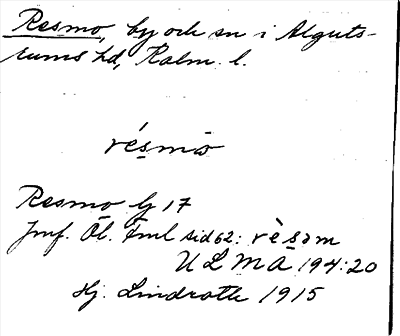 Resmo, by och sn i Alguts-
rums hd, Kalm. l.
résmō
Resmo lj 17
Jmf. Öl. fml sid 62: rèsəm
ULMA 194:20
Hj. Lindroth 1915